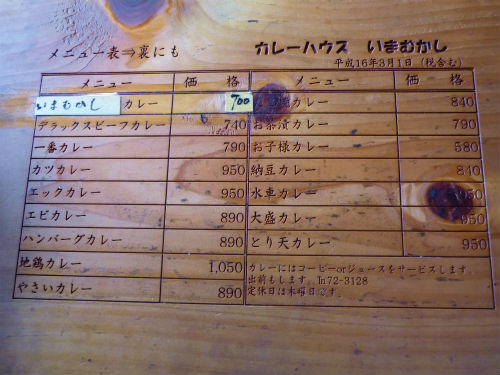 メニュー表⇒裏にも
カレーハウス いまむかし
平成16年3月1日(税含む)
メニュー 価 格
いまむかし カレー 700
デラックスビーフカレー 740
一番カレー 790
カツカレー 950
エッグカレー 950
エビカレー 890
ハンバーグカレー 890
地鶏カレー 1,050
やさいカレー 890
メニュー 価 格
カレー 840
お茶漬カレー 790
お子様カレー 580
納豆カレー 840
水車カレー 950
大盛カレー 950
とり天カレー 950
カレーにはコーヒーorジュースをサービスします
出前もします。℡72-3128
定休日は木曜日です。